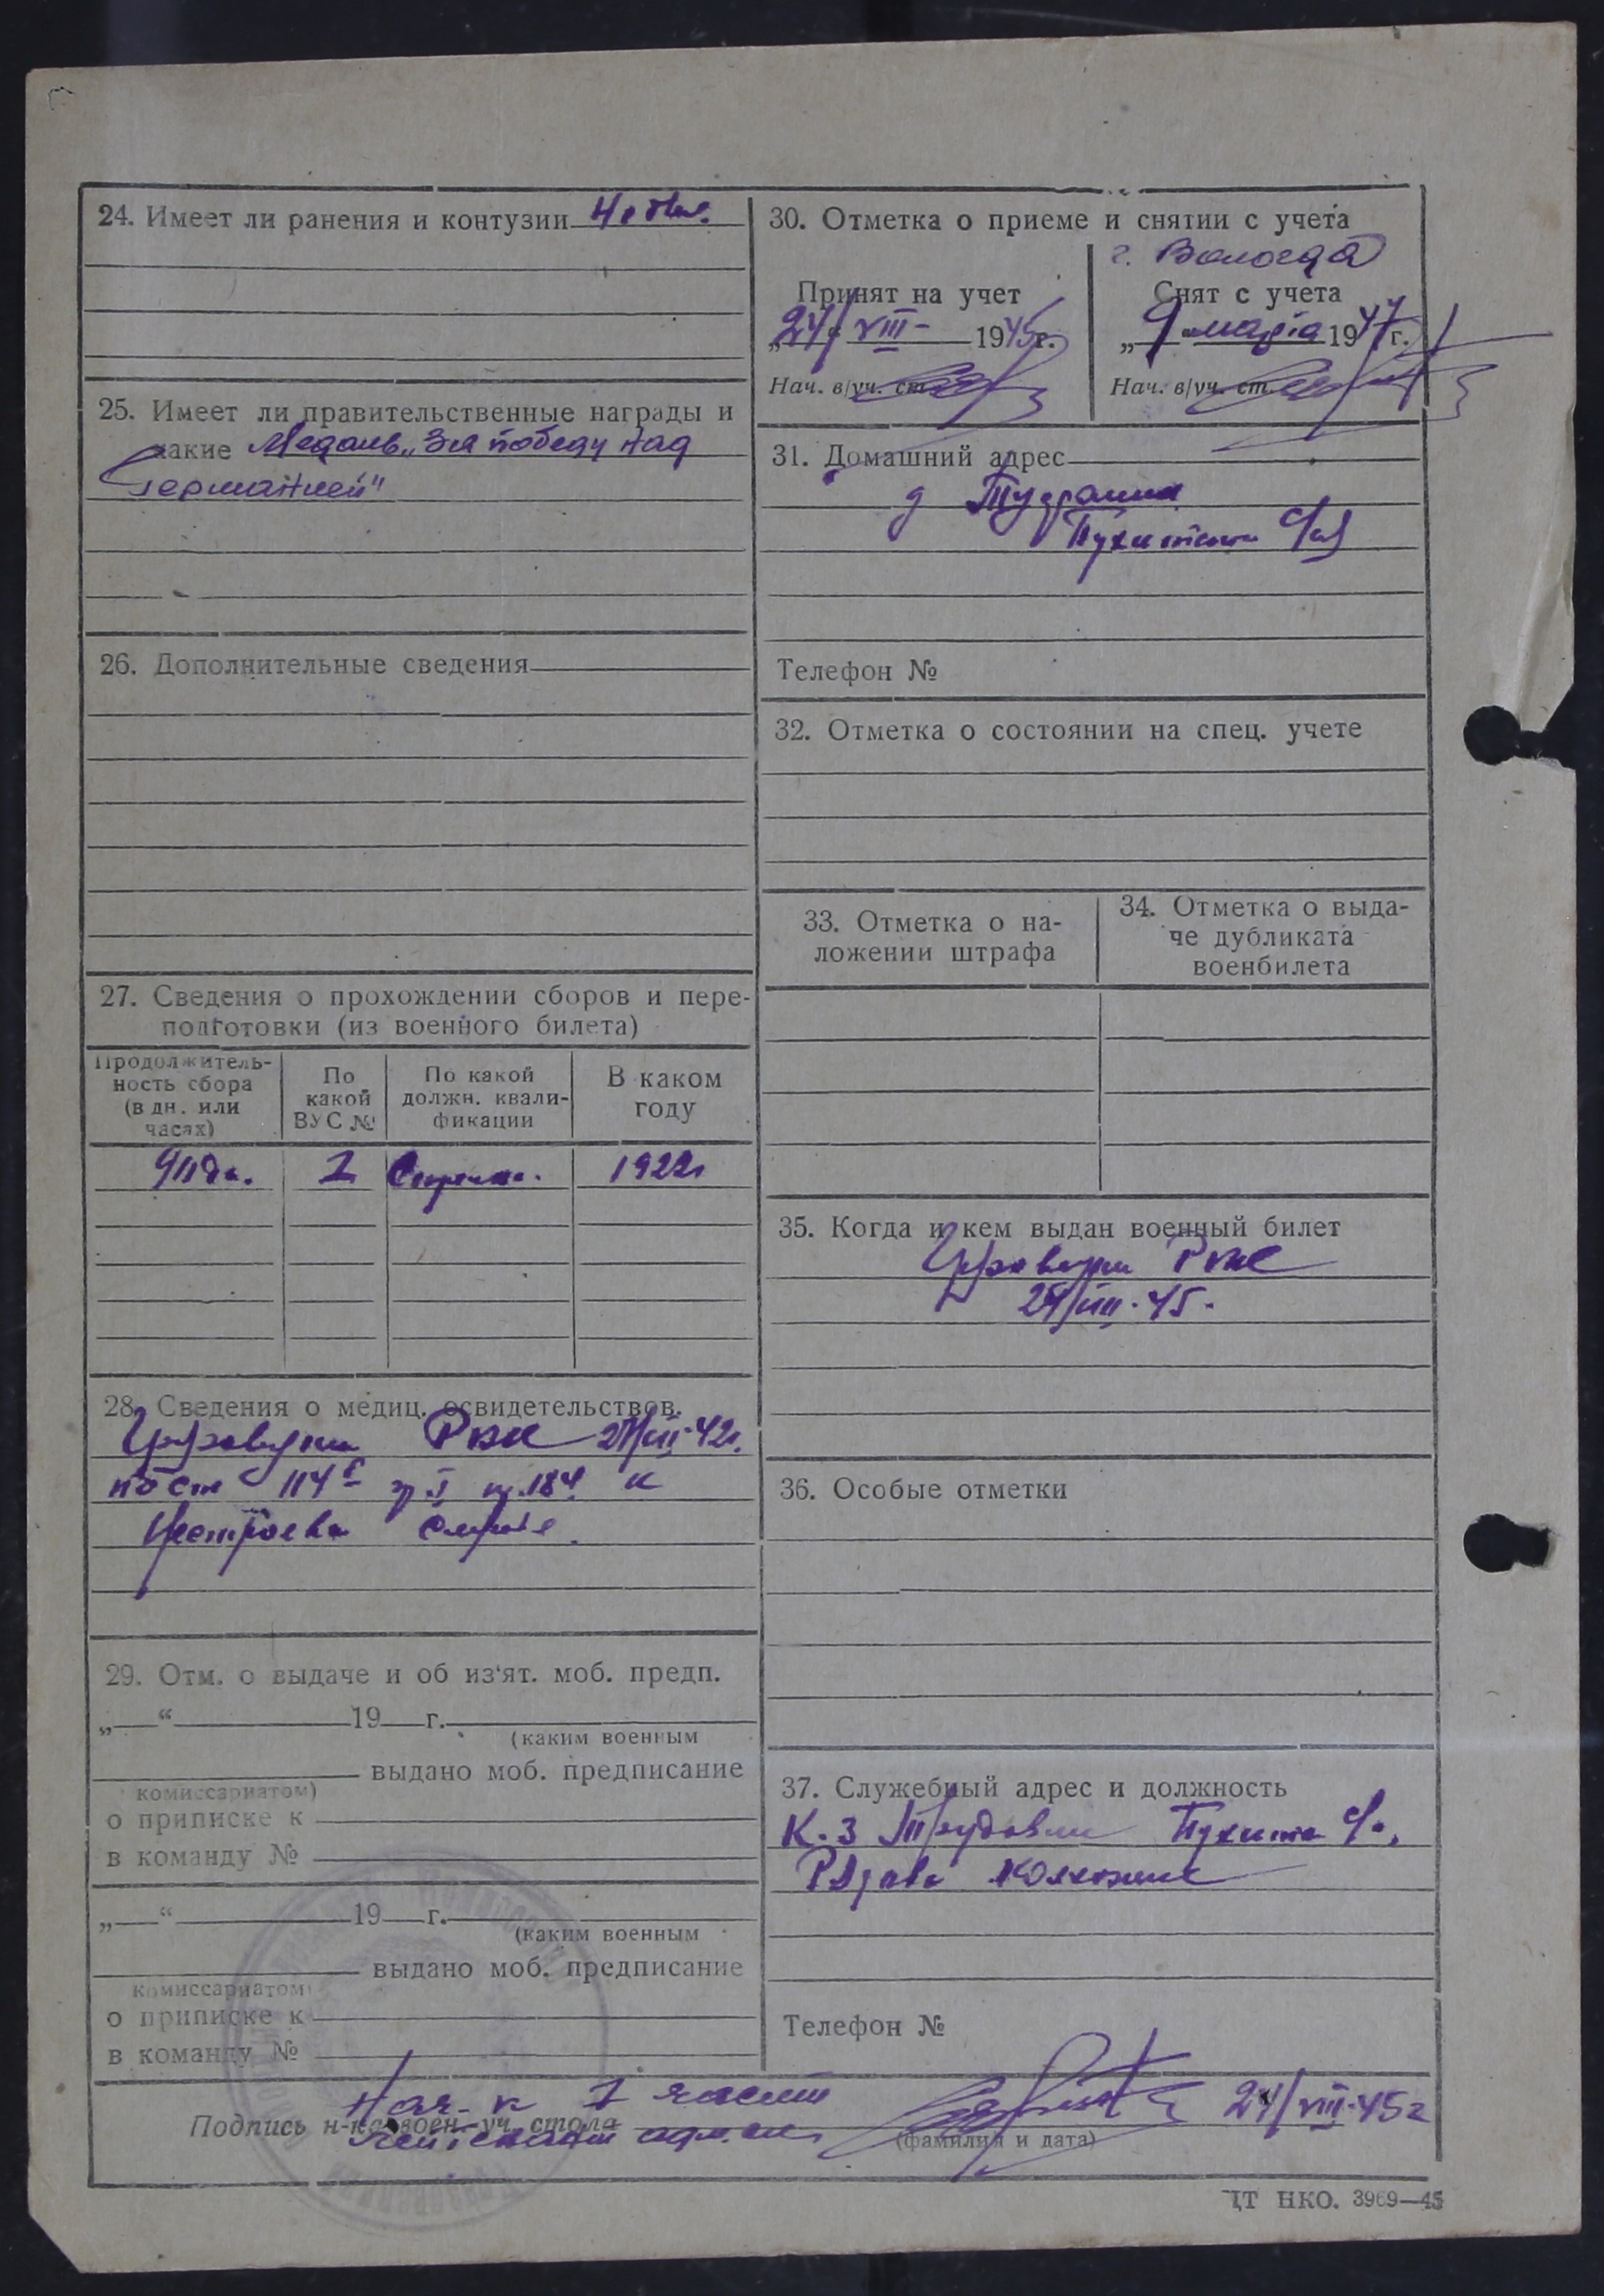 24. Имеет ли ранения и контузии
25. Имеет ли правительственные награды и
какие Медаль „За победу над
Германией"
26. Дополнительные сведения
27. Сведения о прохождении сборов и пере-
подготовки (из военного билета)
Продолжитель-
ность сбора
(в дн. или
часах)
По
какой
ВУС №
По какой
должн. квали-
фикации
В каком
году
1 1922г
28. Сведения о медиц. освидетельствов.
РВК
114
29. Отм. о выдаче и об из'ят. моб. предп.
„ “ 19 г.
(каким военным
выдано моб. предписание
комиссариатом)
о приписке к
в команду №
„ “ 19 г.
(каким военным
выдано моб. предписание
комиссариатом)
о приписке к
в команду №
30. Отметка о приеме и снятии с учета
г. Вологда
Принят на учет
„24“ VIII- 1945г.
Нач. в/уч. ст.
Снят с учета
„9“ марта 1947г.
Нач. в/уч. ст.
31. Домашний адрес
д
с/с
Телефон №
32. Отметка о состоянии на спец. учете
33. Отметка о на-
ложении штрафа
34. Отметка о выда-
че дубликата
военбилета
35. Когда и кем выдан военный билет
РВК
24/VIII-45.
36. Особые отметки
37. Служебный адрес и должность
К-з
колхозник
Телефон №
Нач-к 1 части
Подпись н-ка воен-уч. стола
лейтенант адм. сл. 24/VIII-45г
(фамилия и дата)
ЦТ НКО. 3969—45